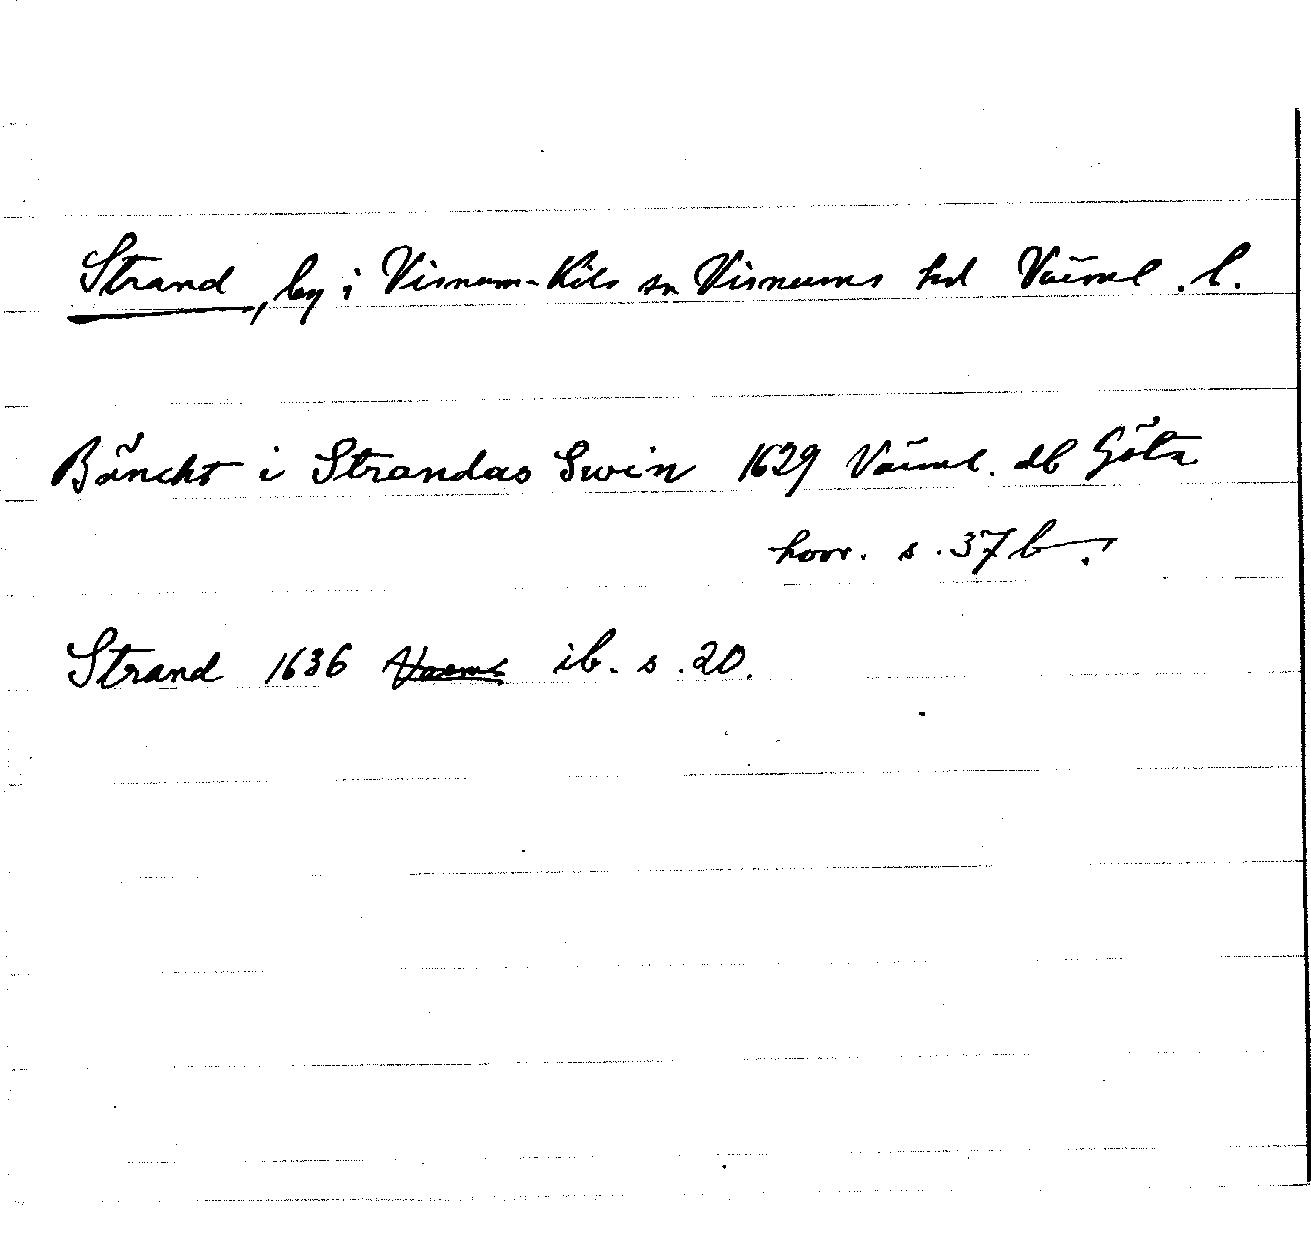 Strand, by i Visnum-Kils sn Visnums hd Värml. l.
Bäncht i Strandas Swin 1629 Värml. db Göta
hovr. s. 37 b.
Strand 1636 ib. s. 20.